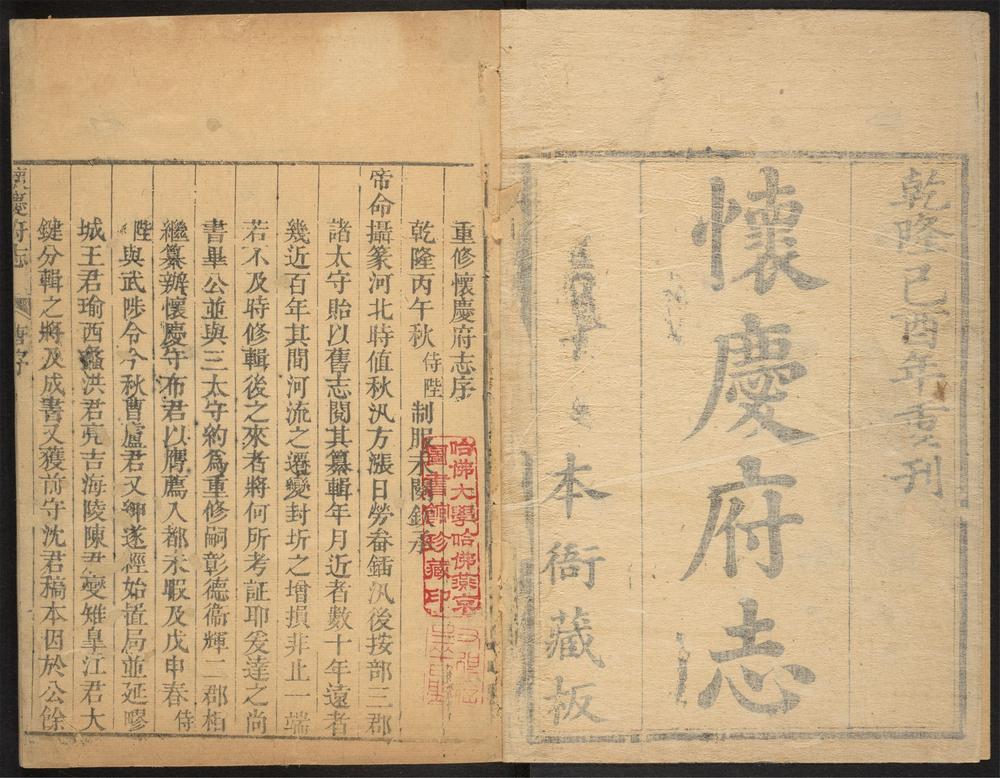 乾隆己酉年重刊
懷慶府志
本衙藏板
重修懷慶府志序
乾隆丙午秋侍陛制服未闋欽承
帝命攝篆河北時值秋汛方漲日勞畚鍤汛後按部三郡
諸太守貽以舊志閱其纂輯年月近者數十年遠者
幾近百年其間河流之遷變封圻之增損非止一端
若不及時修輯後之來者將何所考証耶爰達之尚
書畢公並與三太守約為重修嗣彰德衞輝二郡相
繼纂辦懷慶守布君以膺薦入都未暇及戊申春侍
陛與武陟令今秋曹盧君又
遂經始置局並延嘐
城王君瑜西蠡洪君亮吉海陵陳君燮雉皐江君大
鍵分輯之將及成書又獲前守沈君稿本因於公餘
懷慶府志
哈佛大學哈佛燕京
圖書館珍藏印